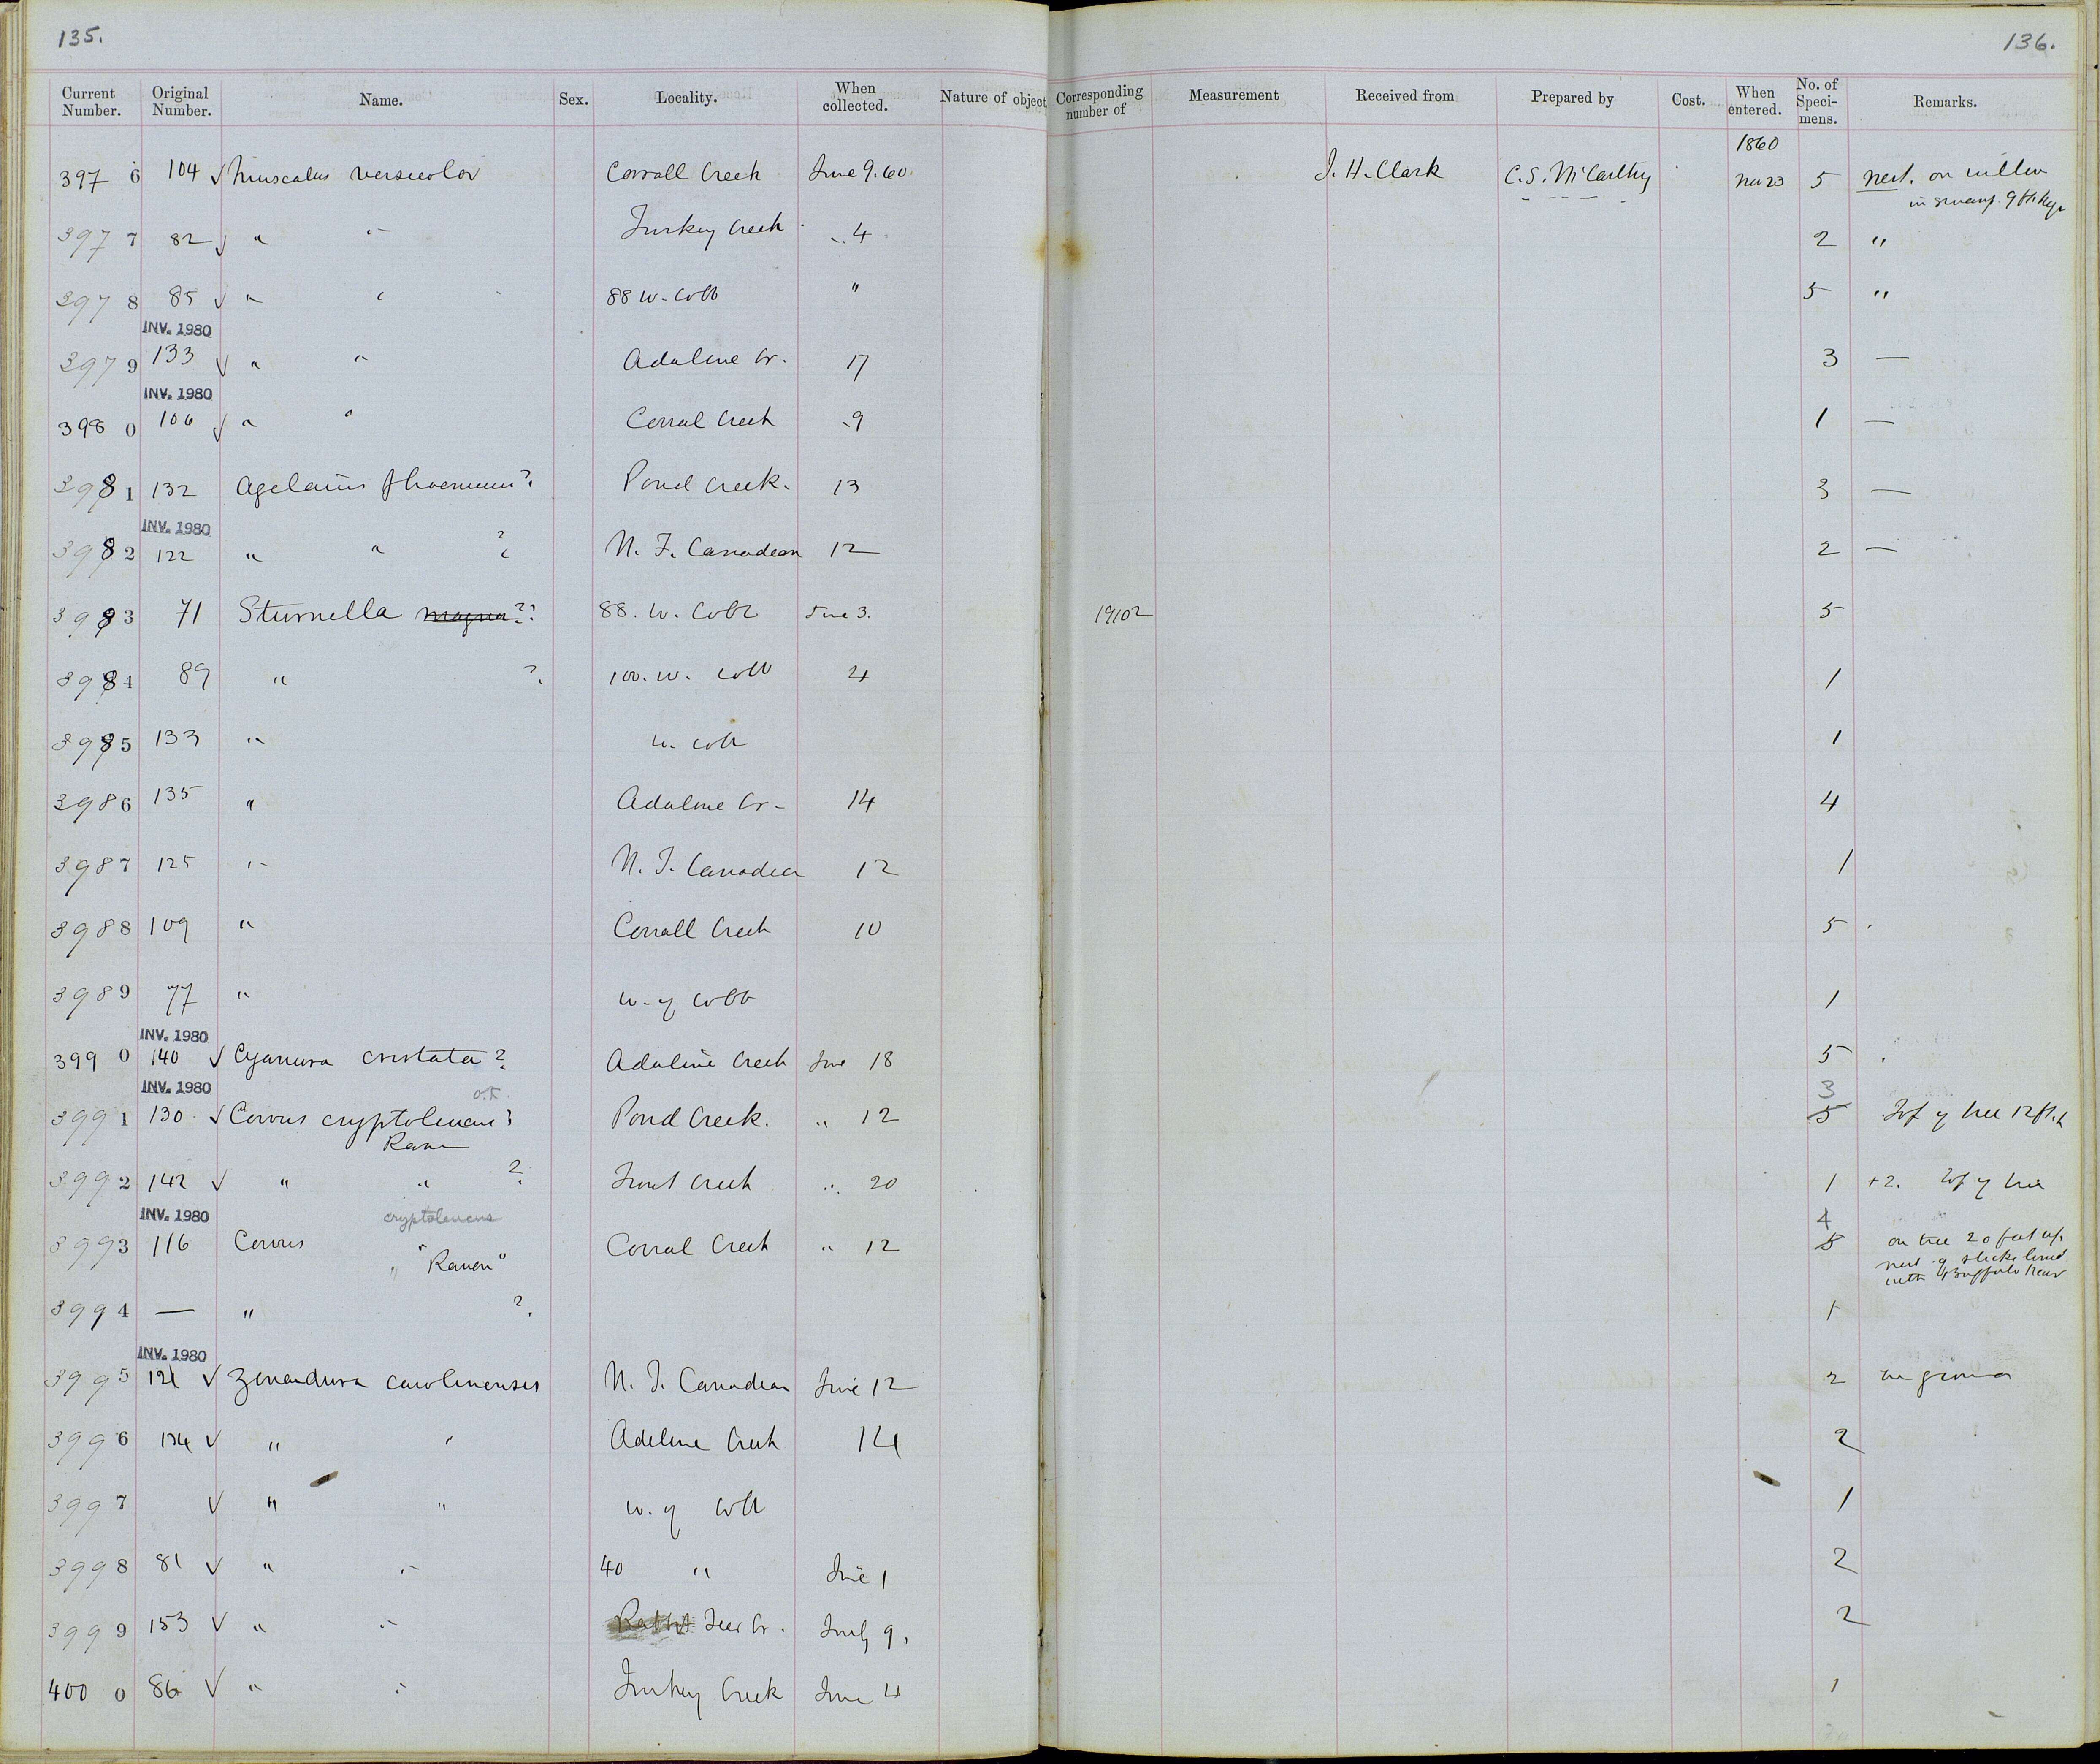 135.
136.
Current Number. Original Number. Name. Sex. Locality. When collected. Nature of object Corresponding number of Measurement Received from Prepared by Cost. When entered. No. of Speci-mens. Remarks.
1860
3976 104 ✓ versicolor Corrall Creek June 9. 60 J. H. Clark C. S. McCarthy Nov 23 5 nest. on willow
in swamp. 9 ft high
3977 82 ✓ " " Turkey Creek " 4 2 "
3978 85 ✓ " " 88 W. Cobb " 5 "
INV. 1980
3979 133 ✓ " " Adaline Cr. 17 3 —
INV. 1980
3980 106 ✓ " " Corral Creek 9 1 —
3981 132 Agelaius phoeniceus? Pond Creek. 13 3 —
INV. 1980
3982 122 " " ? N. F. Canadian 12 2 —
3983 71 Sturnella magna?? 88. W. Cobb June 3. 19102 5
3984 89 " ? 100. W. Cobb 4 1
3985 133 " W. Cobb 1
3986 135 " Adaline Cr. 14 4
3987 125 " N. F. Canadian 12 1
3988 109 " Corrall Creek 10 5
3989 77 " W. of Cobb 1
INV. 1980
3990 140 ✓ Cyanura cristata? Adaline Creek June 18 5
INV. 1980
o.k. 3
3991 130 ✓ Corvus cryptoleucus? Pond Creek. " 12 5 Top of tree 12 ft.
Raven
3992 142 ✓ " " ? Creek " 20 1 +2. Top of tree
INV. 1980
cryptoleucus 4
3993 116 Corvus Corral Creek " 12 5 on tree 20 feet up.
"Raven" nest of sticks lined
with Buffalo hair
3994 — " ? 1
INV. 1980
3995 121 ✓ Zenaidura carolinensis N. F. Canadian June 12 2 on ground
3996 134 ✓ " " Adeline Creek 14 2
3997 ✓ " " W. of Cobb 1
3998 81 ✓ " " 40 " June 1 2
3999 153 ✓ " " Rabbit Cr. July 9. 2
4000 86 ✓ " " Turkey Creek June 4 1